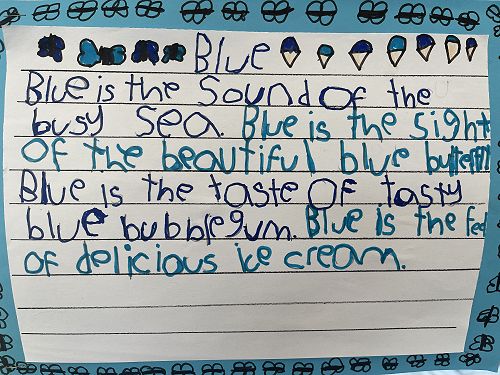 Blue
Blue is the Sound of the
busy Sea. Blue is the sight
of the beautiful blue butterfly
Blue is the taste of tasty
blue bubblegum. Blue is the feel
of delicious ice cream.